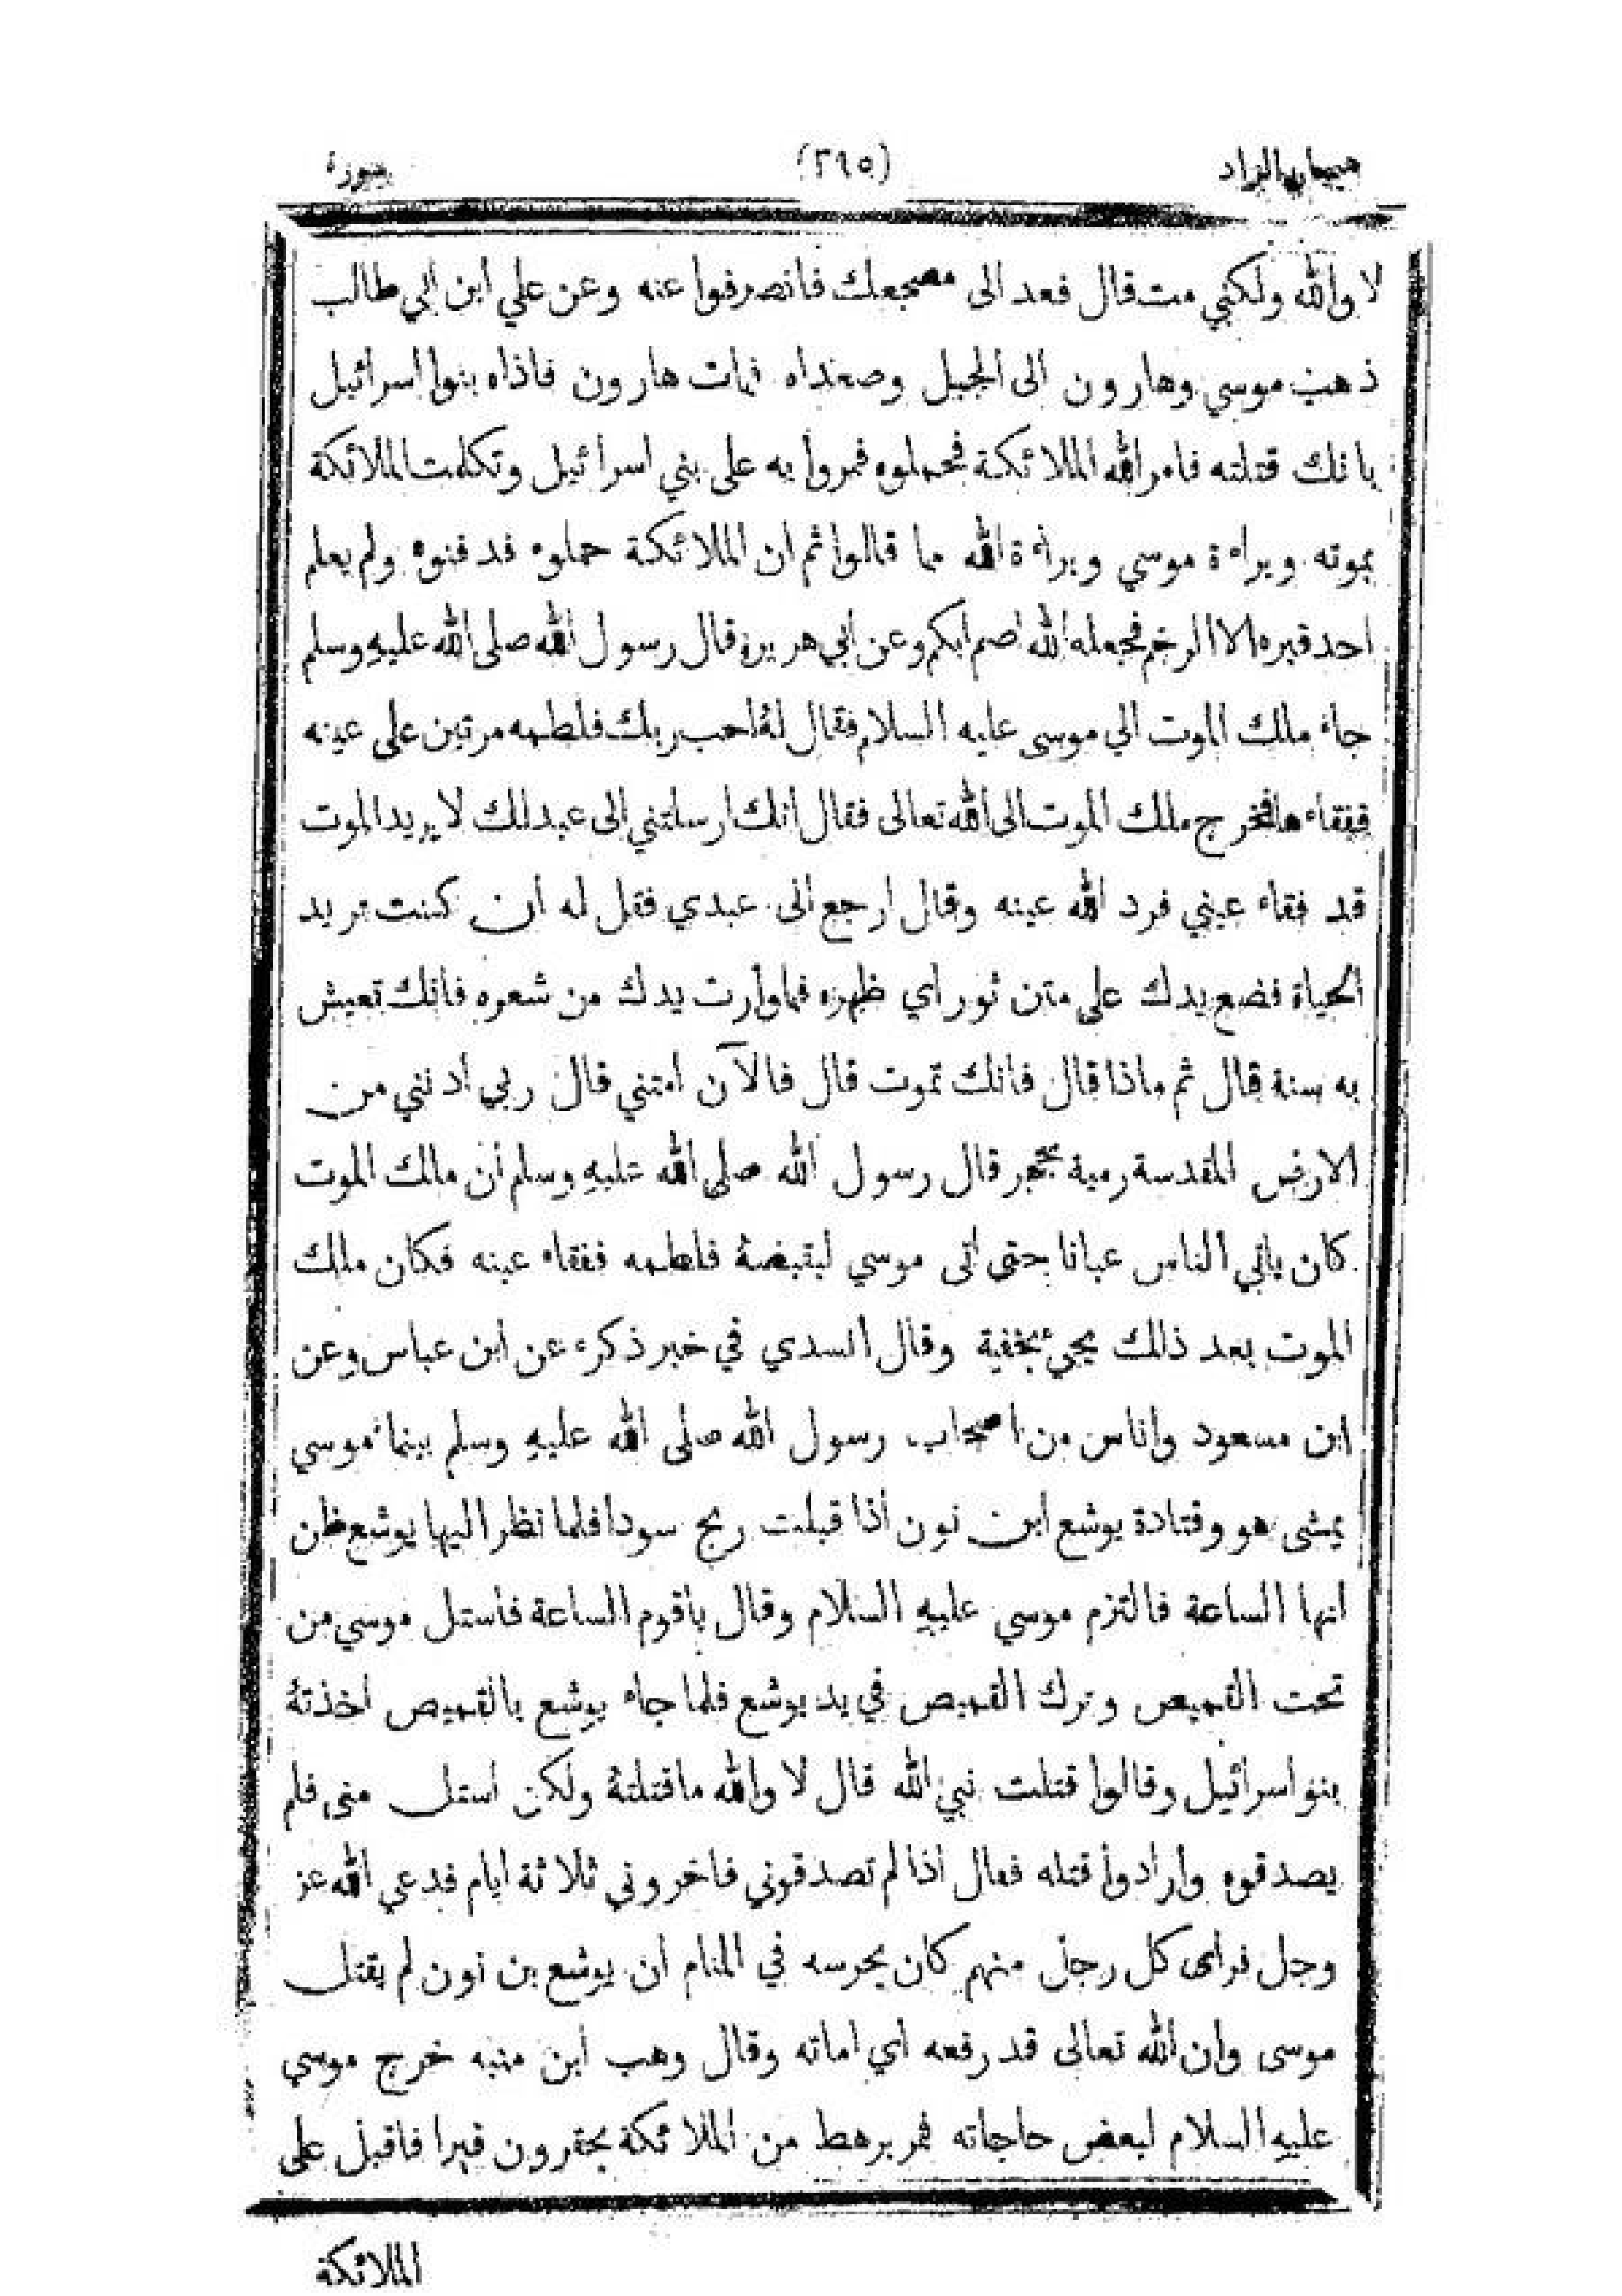 هميان الزاد (٢٩٥) سورة
لا والله ولكني مت قال فعد الى مضجعك فانصرفوا عنه وعن علي ابن ابي طالب
ذهب موسي وهارون الى الجبل وصعداه فمات هارون فاذاه بنوا اسرائيل
بانك قتلته فامر الله الملائكة فحملوه فمروا به على بني اسرائيل وتكلمت الملائكة
بموته وبراءة موسي وبراءة الله مما قالوا ثم ان الملائكة حملوه فدفنوه ولم يعلم
احد قبره الا الرخم فجعله الله اصم ابكم وعن ابي هريرة قال رسول الله صلى الله عليه وسلم
جاء ملك الموت الي موسى عليه السلام فقال له احب ربك فلطمه مرتين على عينه
ففقاءها فخرج ملك الموت الى الله تعالى فقال انك ارسلتني الى عبد لك لا يريد الموت
قد فقاء عيني فرد الله عينه وقال ارجع الى عبدي فقل له ان كنت تريد
الحياة فضع يدك على متن ثور اي ظهره فما وارت يدك من شعره فانك تعيش
به سنة قال ثم ماذا قال فانك تموت قال فالآن امتني قال ربي ادنني من
الارض المقدسة رمية بحجر قال رسول الله صلى الله عليه وسلم ان مالك الموت
كان ياتي الناس عيانا حتى اتى موسي ليقبضة فلطمه ففقاء عينه فكان ملك
الموت بعد ذلك يجيء بخفية وقال السدي في خبر ذكره عن ابن عباس وعن
ابن مسعود واناس من اصحاب رسول الله صلى الله عليه وسلم بينما موسي
يمشى هو وفتادة يوشع ابن نون اذا قبلت ريح سودا فلما نظر اليها يوشع ظن
انها الساعة فالتزم موسي عليه السلام وقال ياقوم الساعة فاستل موسي من
تحت القميص وترك القميص في يد يوشع فلما جاء يوشع بالقميص اخذتة
بنو اسرائيل وقالوا قتلت نبي الله قال لا والله ماقتلتة ولكن استل مني فلم
يصدقوه وارادوا قتله فعال اذا لم تصدقوني فاخروني ثلاثة ايام فدعي الله عز
وجل فراى كل رجل منهم كان يحرسه في المنام ان يوشع بن نون لم يقتل
موسى وان الله تعالى قد رفعه اي اماته وقال وهب ابن منبه خرج موسي
عليه السلام لبعض حاجاته فمر برهط من الملائكة يحفرون قبرا فاقبل على
الملائكة